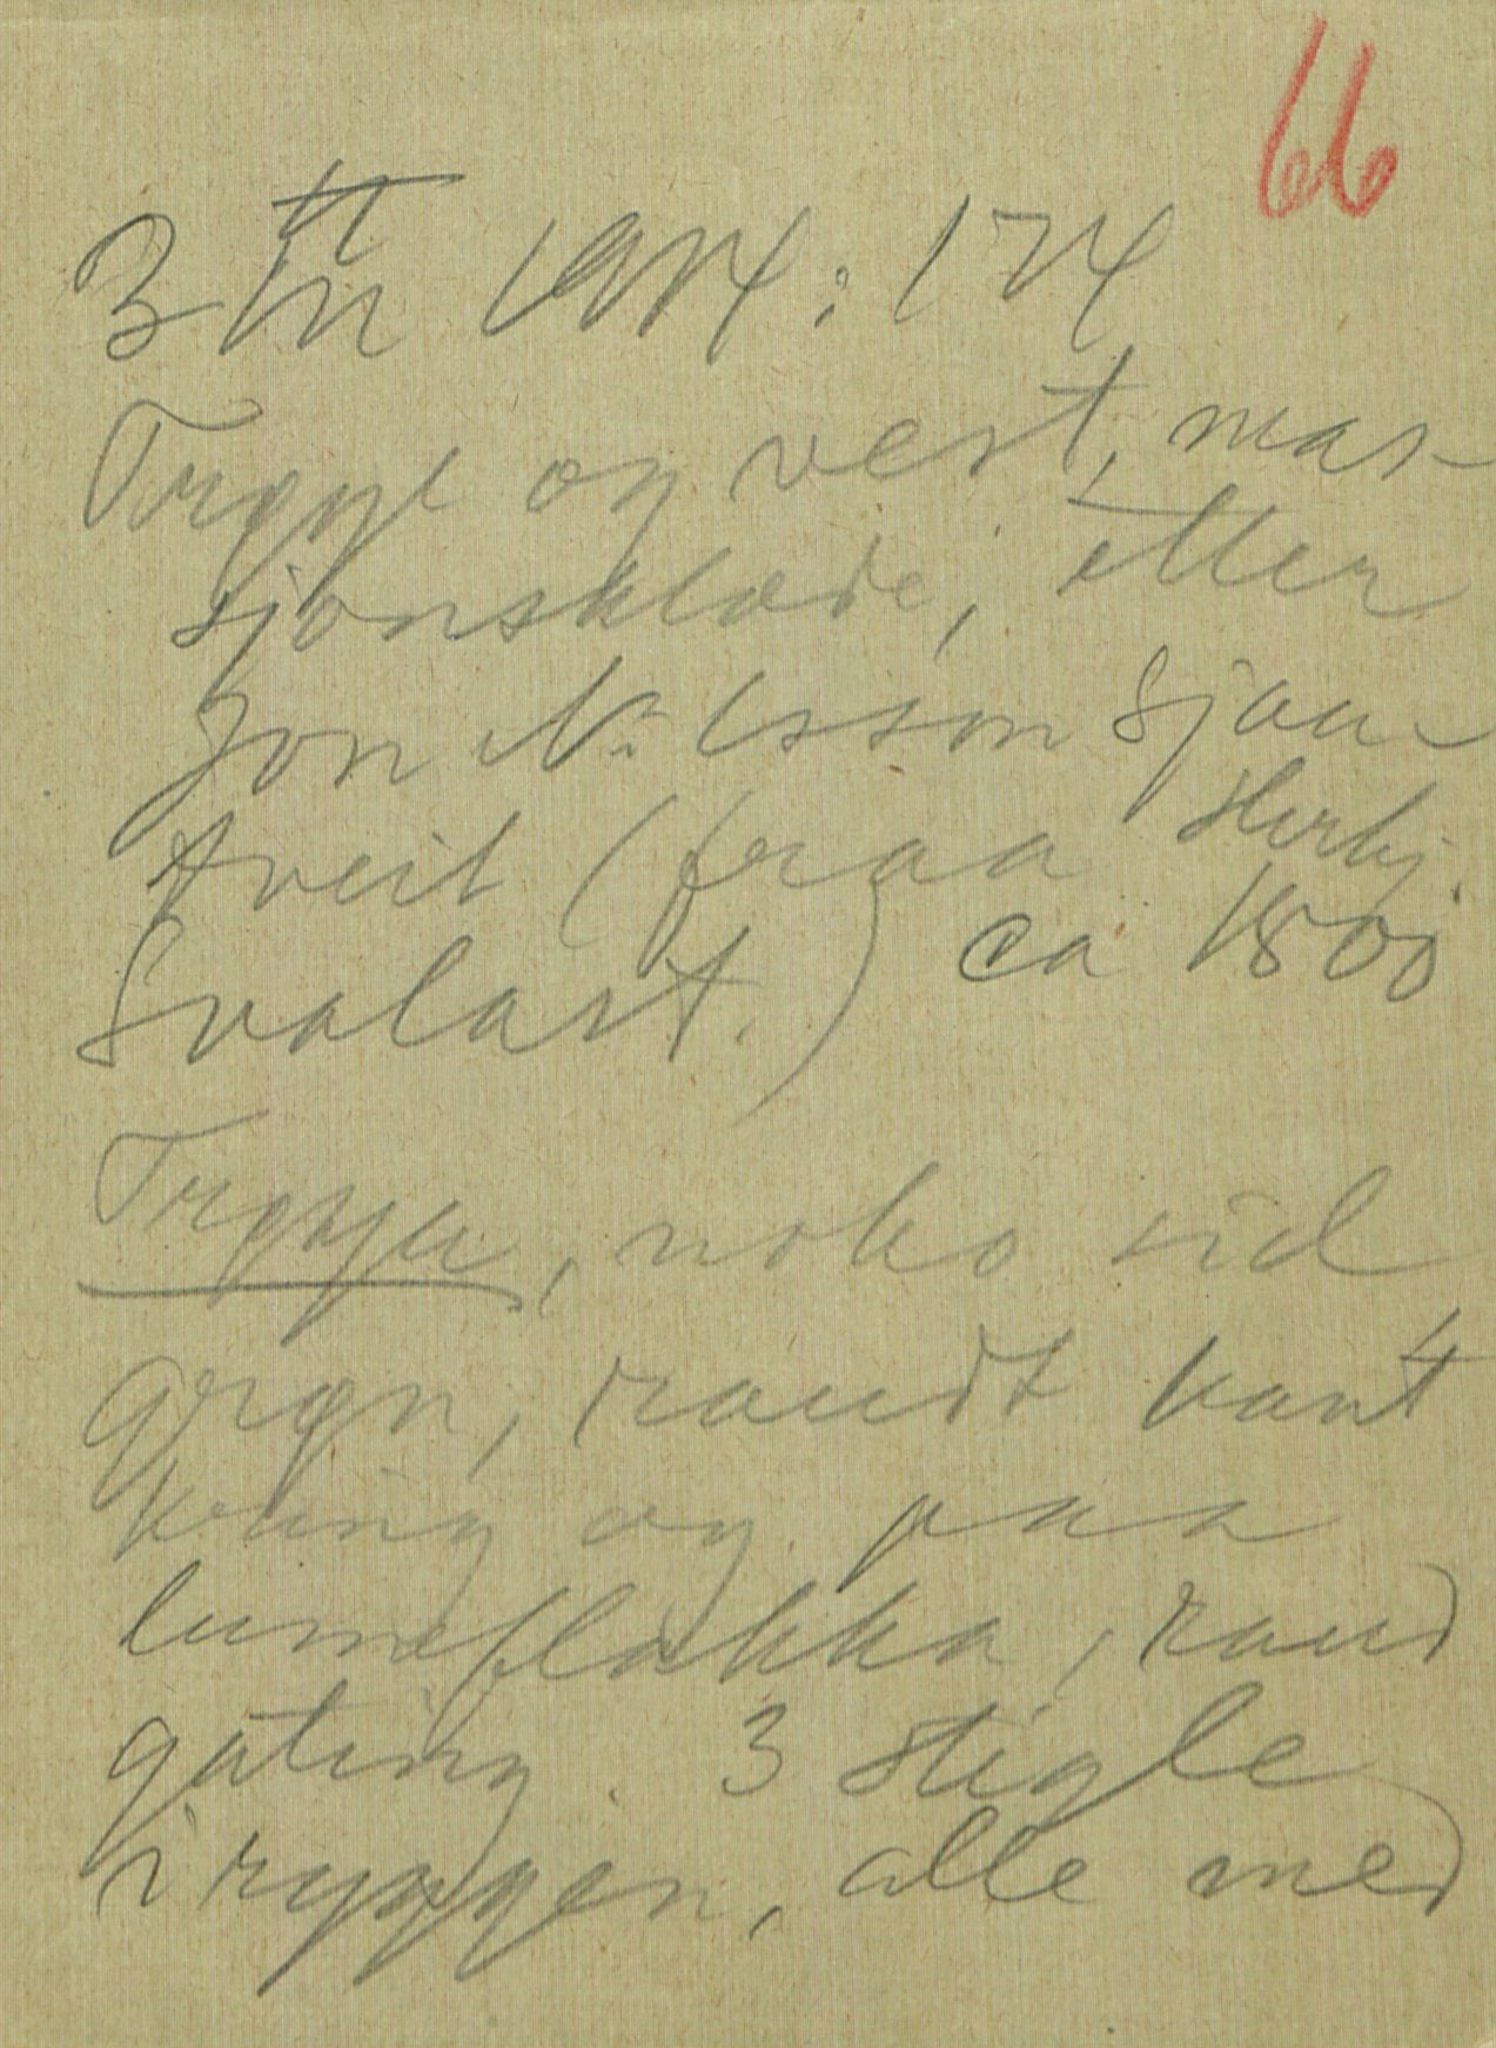 66
1914: 174
Trøye og vest, mas-
sjonsklede, etter
Jon Nilsson Sjau-
tveit (fraa Herbj.
Svalast.) ca 1800
Trøya, noko sid
grøn, raudt kant
kring og paa
lumeflakka, raud
gating. 3 stigle
i ryggen, alle med